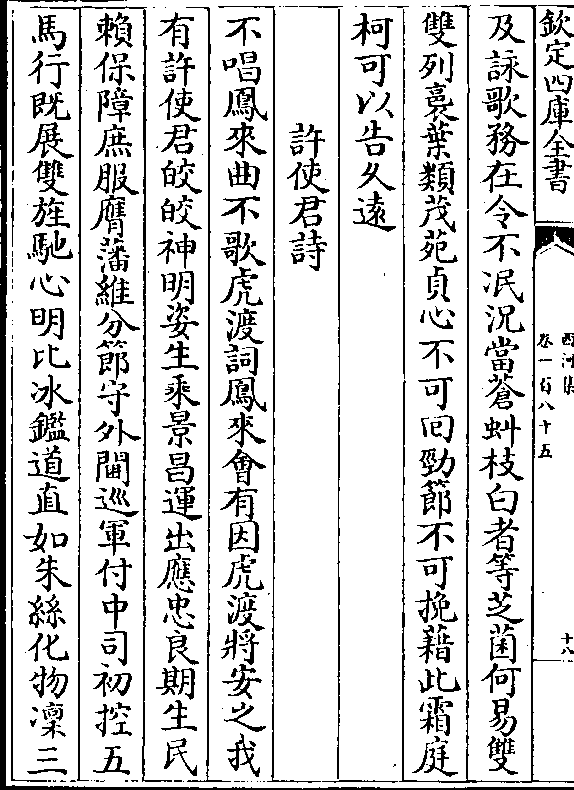 欽定四庫全書
西河集
卷一百八十五
十八
及詠歌務在令不泯況當蒼虬枝白者等芝菌何易雙
雙列裛葉類茂苑貞心不可回勁節不可挽藉此霜庭
柯可以告久遠
許使君詩
不唱鳳來曲不歌虎渡詞鳳來會有因虎渡將安之我
有許使君皎皎神明姿生乘景昌運出應忠良期生民
賴保障庶服膺藩維分節守外閫巡軍付中司初控五
馬行既展雙旌馳心明比冰鑑道直如朱絲化物凜三